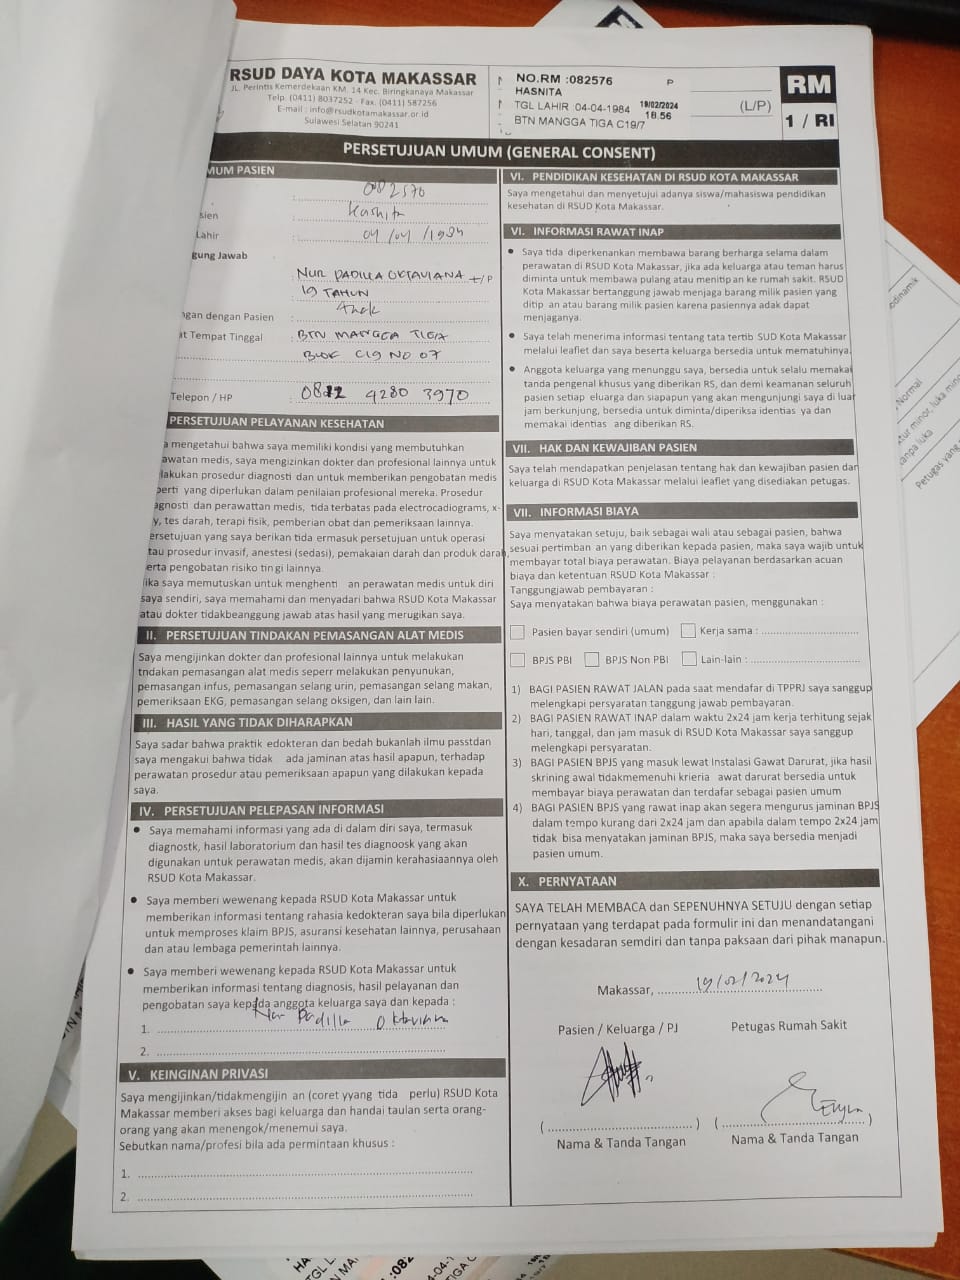 RSUD DAYA KOTA MAKASSAR
JL. Perintis Kemerdekaan KM. 14 Kec. Biringkanaya Makassar
Telp. (0411) 8037252 - Fax. (0411) 587256
E-mail : info@rsudkotamakassar.or.id
Sulawesi Selatan 90241
NO.RM :082576 P
HASNITA
TGL LAHIR :04-04-1984 19/02/2024
18.56
BTN MANGGA TIGA C19/7
(L/P)
RM
1 / RI
PERSETUJUAN UMUM (GENERAL CONSENT)
MUM PASIEN
: 082576
sien : Hasnita
Lahir : 04/04/1984
gung Jawab
: NUR PADILLA OKTAVIANA L/P
19 TAHUN
ngan dengan Pasien : Anak
at Tempat Tinggal : BTN MANGGA TIGA
BLOK C19 NO 07
Telepon / HP : 0812 4280 3970
PERSETUJUAN PELAYANAN KESEHATAN
a mengetahui bahwa saya memiliki kondisi yang membutuhkan
awatan medis, saya mengizinkan dokter dan profesional lainnya untuk
lakukan prosedur diagnosti dan untuk memberikan pengobatan medis
perti yang diperlukan dalam penilaian profesional mereka. Prosedur
agnosti dan perawattan medis, tida terbatas pada electrocadiograms, x-
y, tes darah, terapi fisik, pemberian obat dan pemeriksaan lainnya.
ersetujuan yang saya berikan tida ermasuk persetujuan untuk operasi
tau prosedur invasif, anestesi (sedasi), pemakaian darah dan produk darah,
erta pengobatan risiko tin gi lainnya.
ika saya memutuskan untuk menghenti an perawatan medis untuk diri
saya sendiri, saya memahami dan menyadari bahwa RSUD Kota Makassar
atau dokter tidakbeanggung jawab atas hasil yang merugikan saya.
II. PERSETUJUAN TINDAKAN PEMASANGAN ALAT MEDIS
Saya mengijinkan dokter dan profesional lainnya untuk melakukan
tndakan pemasangan alat medis seperr melakukan penyunukan,
pemasangan infus, pemasangan selang urin, pemasangan selang makan,
pemeriksaan EKG, pemasangan selang oksigen, dan lain lain.
III. HASIL YANG TIDAK DIHARAPKAN
Saya sadar bahwa praktik edokteran dan bedah bukanlah ilmu passtdan
saya mengakui bahwa tidak ada jaminan atas hasil apapun, terhadap
perawatan prosedur atau pemeriksaan apapun yang dilakukan kepada
saya.
IV. PERSETUJUAN PELEPASAN INFORMASI
• Saya memahami informasi yang ada di dalam diri saya, termasuk
diagnostk, hasil laboratorium dan hasil tes diagnoosk yang akan
digunakan untuk perawatan medis, akan dijamin kerahasiaannya oleh
RSUD Kota Makassar.
• Saya memberi wewenang kepada RSUD Kota Makassar untuk
memberikan informasi tentang rahasia kedokteran saya bila diperlukan
untuk memproses klaim BPJS, asuransi kesehatan lainnya, perusahaan
dan atau lembaga pemerintah lainnya.
• Saya memberi wewenang kepada RSUD Kota Makassar untuk
memberikan informasi tentang diagnosis, hasil pelayanan dan
pengobatan saya kepada anggota keluarga saya dan kepada :
1. Nur Padilla Oktaviana
2.
V. KEINGINAN PRIVASI
Saya mengijinkan/tidakmengijin an (coret yyang tida perlu) RSUD Kota
Makassar memberi akses bagi keluarga dan handai taulan serta orang-
orang yang akan menengok/menemui saya.
Sebutkan nama/profesi bila ada permintaan khusus :
1.
2.
VI. PENDIDIKAN KESEHATAN DI RSUD KOTA MAKASSAR
Saya mengetahui dan menyetujui adanya siswa/mahasiswa pendidikan
kesehatan di RSUD Kota Makassar.
VI. INFORMASI RAWAT INAP
• Saya tida diperkenankan membawa barang berharga selama dalam
perawatan di RSUD Kota Makassar, jika ada keluarga atau teman harus
diminta untuk membawa pulang atau menitip an ke rumah sakit. RSUD
Kota Makassar bertanggung jawab menjaga barang milik pasien yang
ditip an atau barang milik pasien karena pasiennya adak dapat
menjaganya.
• Saya telah menerima informasi tentang tata tertib SUD Kota Makassar
melalui leaflet dan saya beserta keluarga bersedia untuk mematuhinya.
• Anggota keluarga yang menunggu saya, bersedia untuk selalu memakai
tanda pengenal khusus yang diberikan RS, dan demi keamanan seluruh
pasien setiap eluarga dan siapapun yang akan mengunjungi saya di luar
jam berkunjung, bersedia untuk diminta/diperiksa identias ya dan
memakai identias ang diberikan RS.
VII. HAK DAN KEWAJIBAN PASIEN
Saya telah mendapatkan penjelasan tentang hak dan kewajiban pasien dan
keluarga di RSUD Kota Makassar melalui leaflet yang disediakan petugas.
VII. INFORMASI BIAYA
Saya menyatakan setuju, baik sebagai wali atau sebagai pasien, bahwa
sesuai pertimban an yang diberikan kepada pasien, maka saya wajib untuk
membayar total biaya perawatan. Biaya pelayanan berdasarkan acuan
biaya dan ketentuan RSUD Kota Makassar :
Tanggungjawab pembayaran :
Saya menyatakan bahwa biaya perawatan pasien, menggunakan :
Pasien bayar sendiri (umum) Kerja sama :
BPJS PBI BPJS Non PBI Lain-lain :
1) BAGI PASIEN RAWAT JALAN pada saat mendafar di TPPRJ saya sanggup
melengkapi persyaratan tanggung jawab pembayaran.
2) BAGI PASIEN RAWAT INAP dalam waktu 2x24 jam kerja terhitung sejak
hari, tanggal, dan jam masuk di RSUD Kota Makassar saya sanggup
melengkapi persyaratan.
3) BAGI PASIEN BPJS yang masuk lewat Instalasi Gawat Darurat, jika hasil
skrining awal tidakmemenuhi krieria awat darurat bersedia untuk
membayar biaya perawatan dan terdafar sebagai pasien umum
4) BAGI PASIEN BPJS yang rawat inap akan segera mengurus jaminan BPJS
dalam tempo kurang dari 2x24 jam dan apabila dalam tempo 2x24 jam
tidak bisa menyatakan jaminan BPJS, maka saya bersedia menjadi
pasien umum.
X. PERNYATAAN
SAYA TELAH MEMBACA dan SEPENUHNYA SETUJU dengan setiap
pernyataan yang terdapat pada formulir ini dan menandatangani
dengan kesadaran semdiri dan tanpa paksaan dari pihak manapun.
Makassar, 19/02/2024
Pasien / Keluarga / PJ Petugas Rumah Sakit
( ) ( )
Nama & Tanda Tangan Nama & Tanda Tangan
odinamik
Normal
tur minor, luka mino
anpa luka
Petugas yang